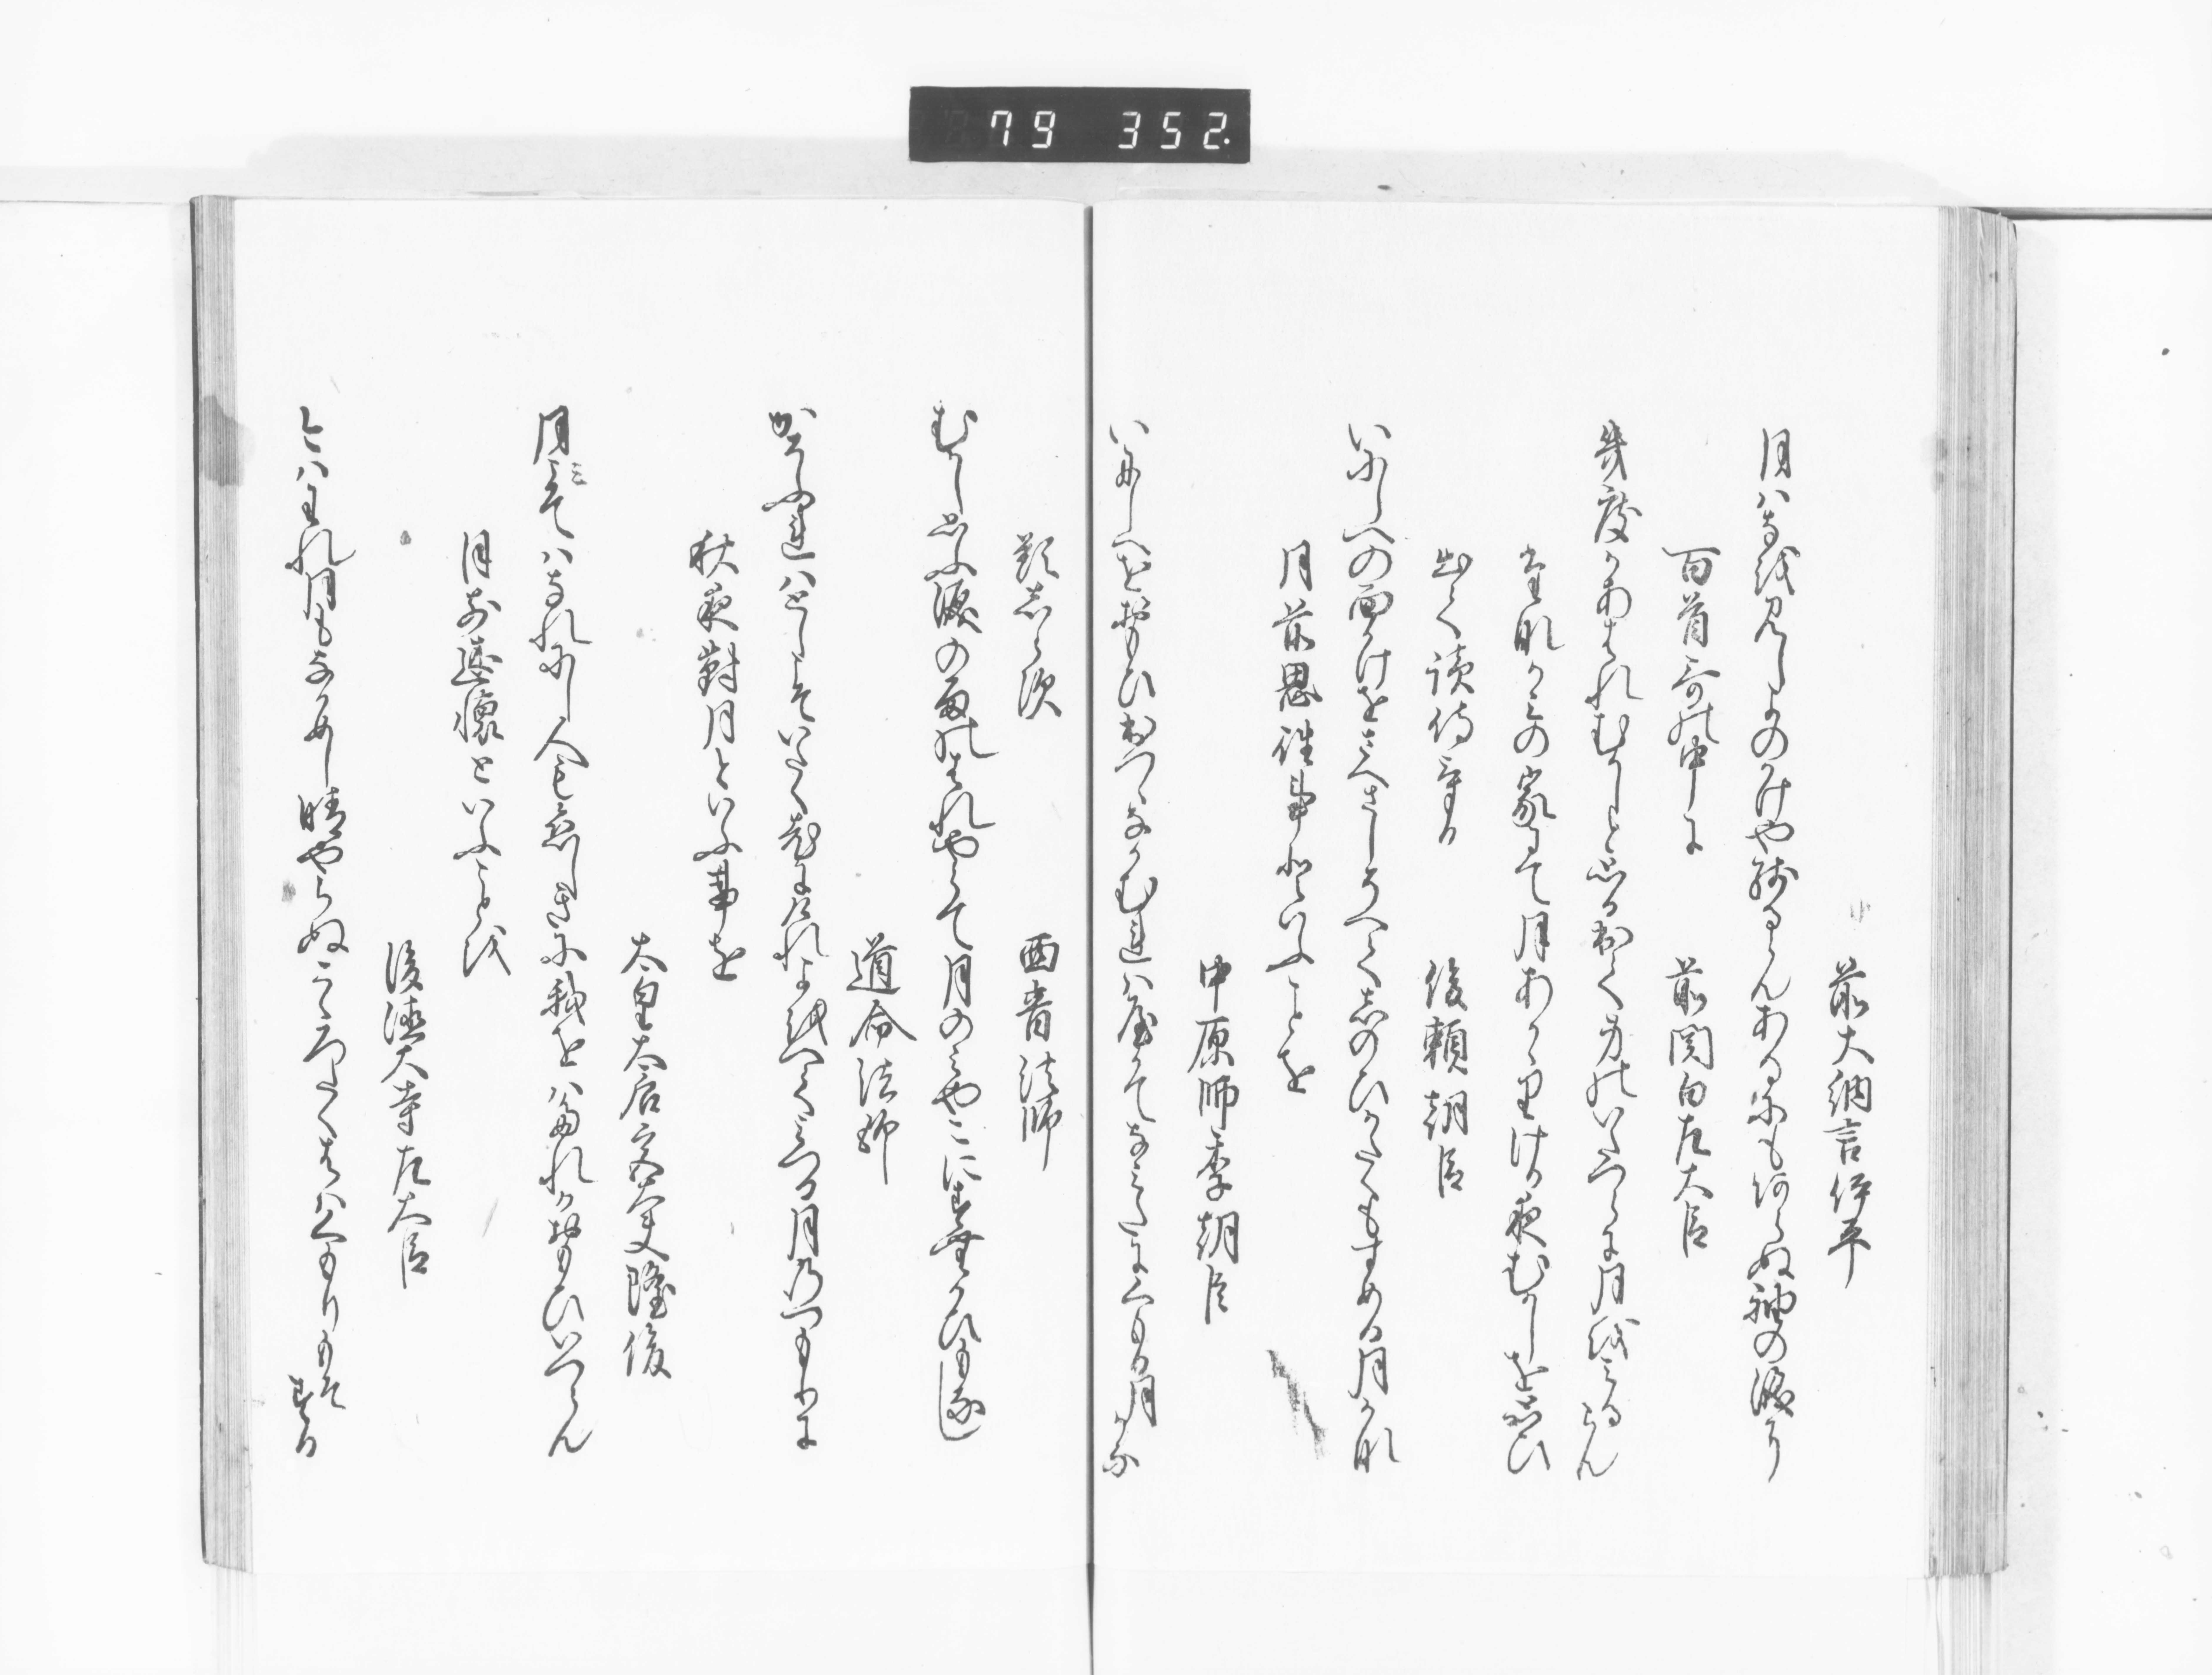 79 352.
前大納言伊平
月ハなを見しよのかけや残るらんあるにもあらぬ袖の涙に
百首哥の中に 前関白左大臣
幾度かあはれむかしと思ひ出て身のいたつらに月をみるらん
家にて月あかゝりける夜むかしを思ひ
出て読侍ける 俊頼朝臣
いにしへの面かけをさへさしそへて忍ひかたくもすめる月かな
月前思往事といふことを
中原師季朝臣
いにしへをおもひ出つゝなかむれハやかてなみたにくもる月かな
題しらす 西音法師
むかし思ふ涙の雨のはれやらて月のみやこに
道命法師
かそふれハとしそいたく老にけれよをへてみつる月のつもりに
秋夜対月といふ事を
太皇太后宮大夫隆俊
月みてハなれにし人も恋しきに我をハたれかおもひいつらん
月前述懐といふことを
後徳大寺左大臣
今ハわれ月もなかめし晴やらぬこゝろ